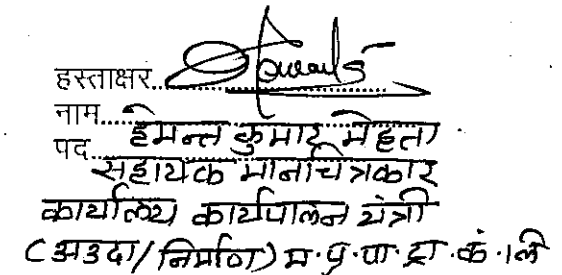 हस्ताक्षर
नाम हेमन्त कुमार मेहता
पद सहायक मानचित्रकार
कार्यालय कार्यपालन यंत्री
(अउदा/निर्माण) म.प्र.पा.ट्रा.कं.लि